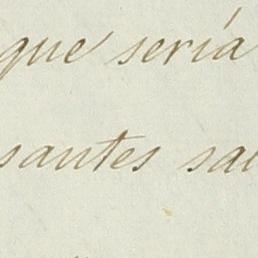 que sería
santes sa